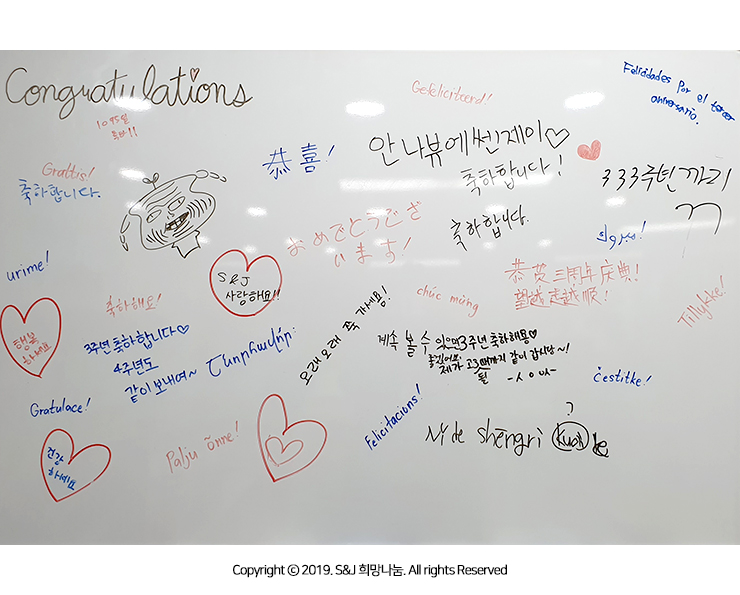 Congratulations
Gefeliciteerd!
Felicidades por el tercer
aniversario.
1095일
축하!!
Grattis!
축하합니다.
恭喜!
안나뷰에쎈제이♡
축하합니다!
333주년까지
축하합니다.
おめでとうござ
います!
مبروك!
urime!
S&J
사랑해요!!
恭贺三周年庆典!
望越走越顺!
Tillykke!
행복
하세요
축하해요!
chúc mừng
3주년 축하합니다♡
4주년도
같이 보내여~
Շնորհավոր:
오래오래 쭉 가세용!
계속 볼 수 있으면
좋겠어요
3주년 축하해용♡
제가 고3 때까지 같이 갑시당~!
Gratulace!
Felicitacions!
čestitke!
건강
하세요
Palju õnne!
?
Nǐ de shēngrì kuài le
Copyright ⓒ 2019. S&J 희망나눔. All rights Reserved